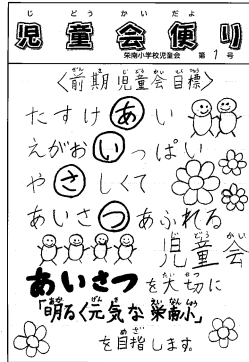 じどうかいだよ
児童会便り
栄南小学校児童会 第1号
ぜんきじどうかいもくひょう
〈前期児童会目標〉
たすけあい
えがおいっぱい
やさしくて
あいさつあふれる
じどうかい
児童会
あいさつを大切に
「明るく元気な栄南小」
を目指します。